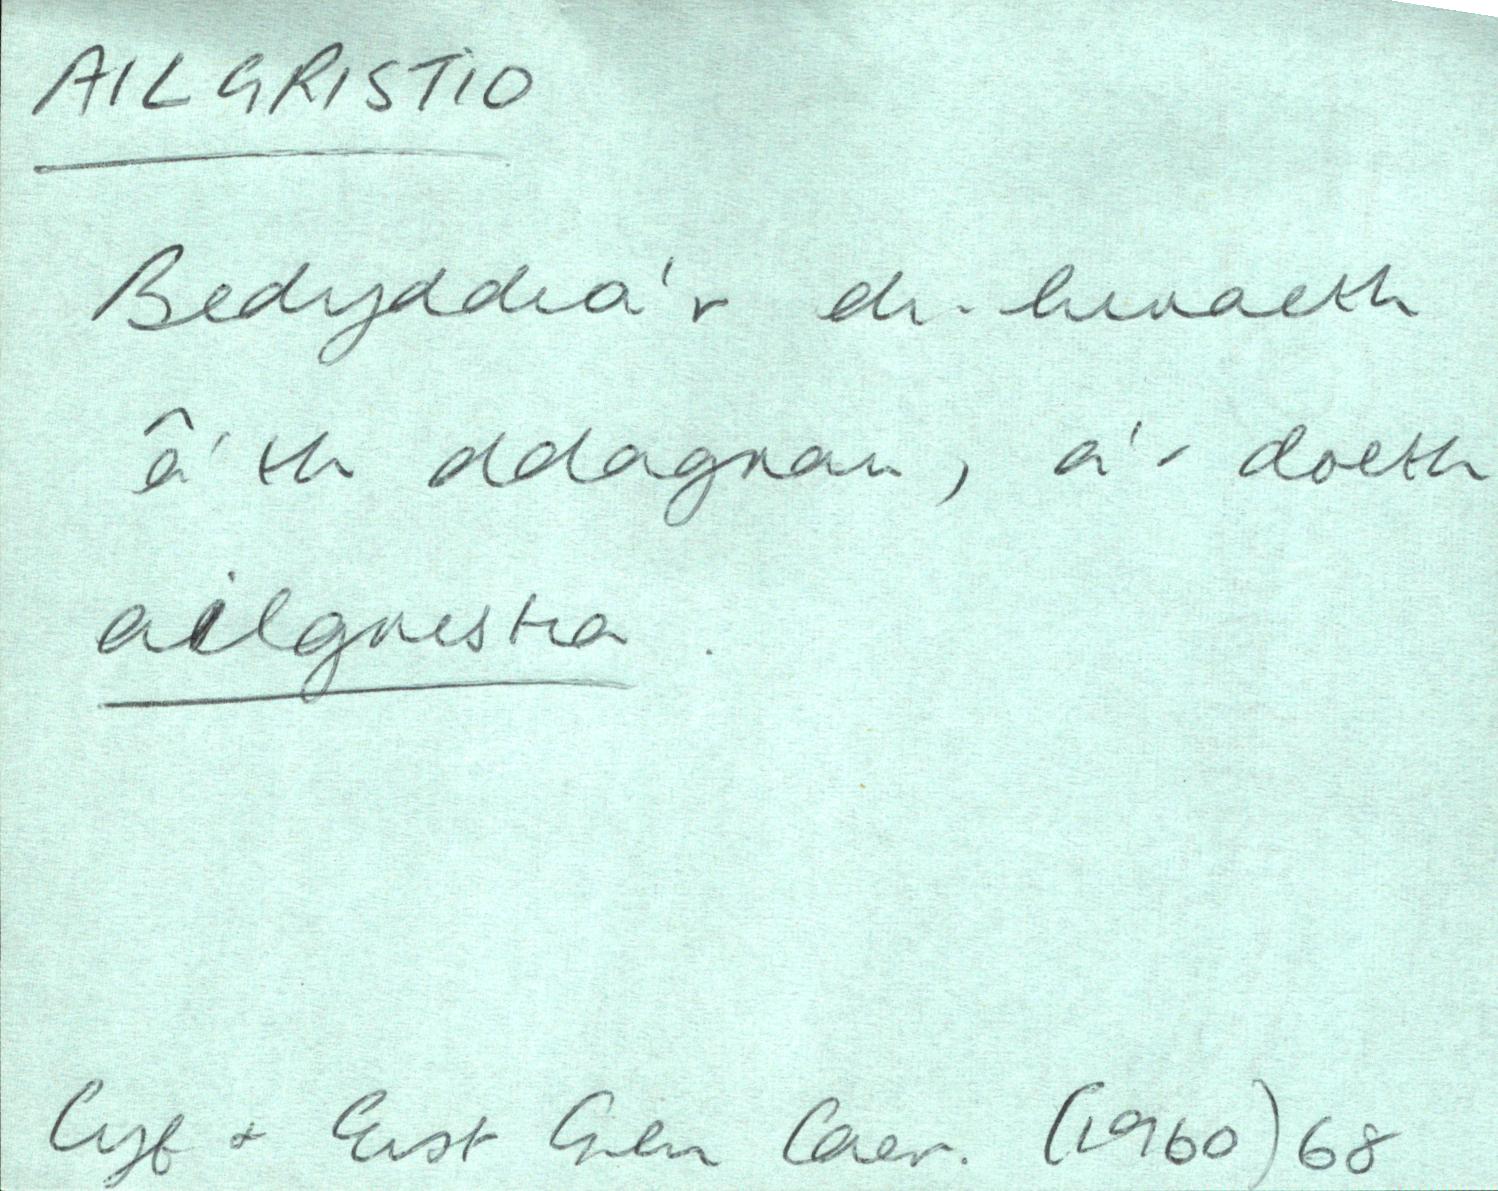 AILGRISTIO
Bedyddia'r di-hiraeth
â'th ddagrau, a'r doeth
ailgristia.
Cyf + Eist Gen Caer. (1960) 68